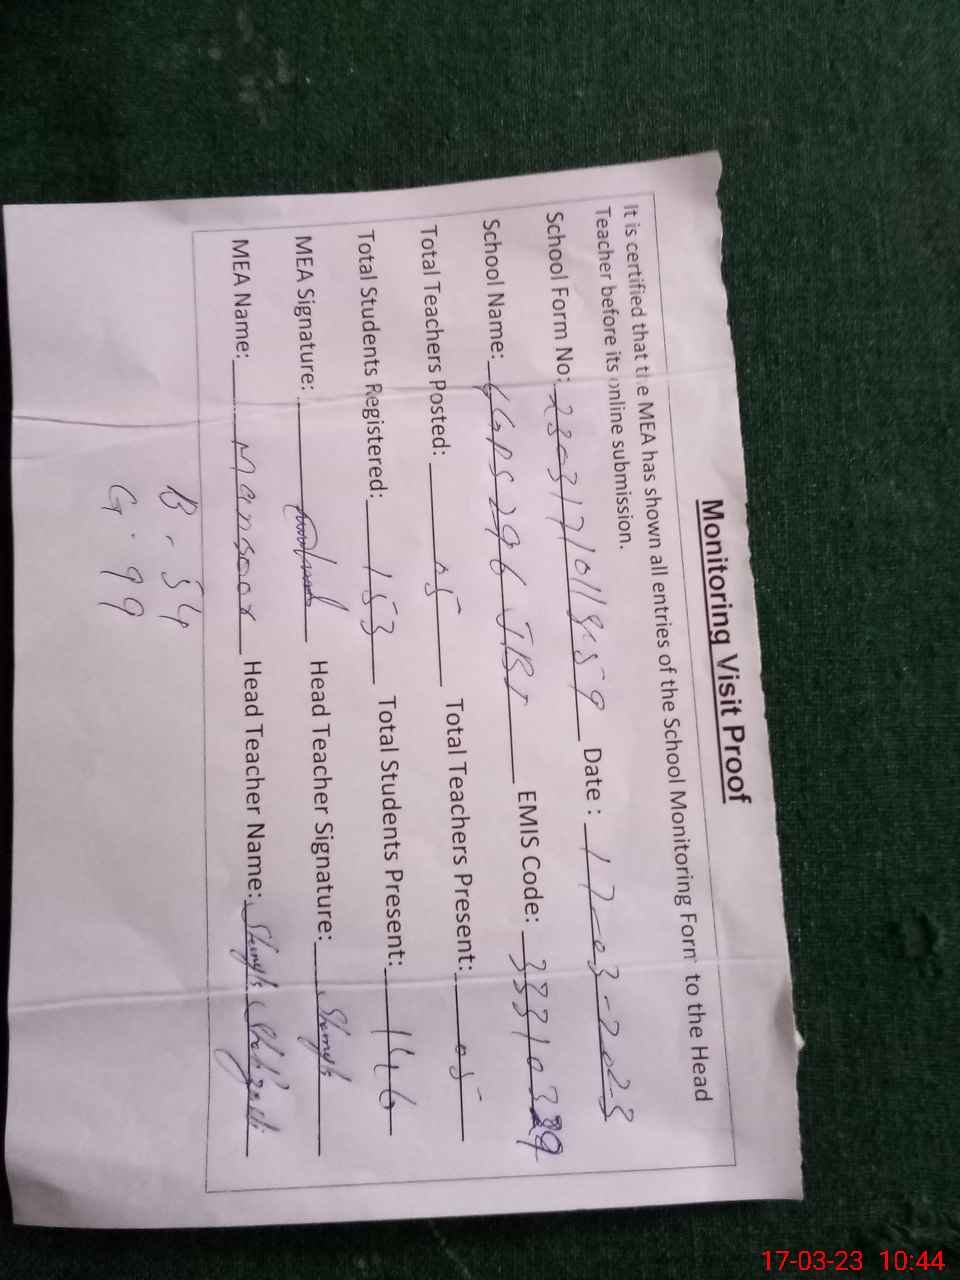 Monitoring Visit Proof
It is certified that the MEA has shown all entries of the School Monitoring Form to the Head
Teacher before its online submission.
School Form No: Date : 17-03-2023
School Name: GGPS 296 JB EMIS Code:
Total Teachers Posted: 05 Total Teachers Present: 05
Total Students Registered: 153 Total Students Present: 146
MEA Signature: Head Teacher Signature:
MEA Name: Mansoor Head Teacher Name:
B. 54
G. 99
17-03-23 10:44